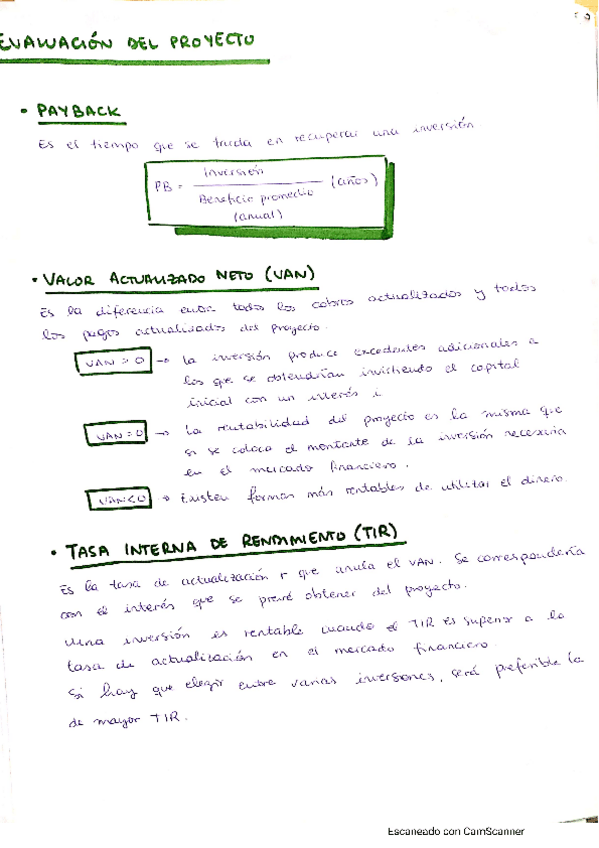 EVALUACIÓN DEL PROYECTO
• PAYBACK
Es el tiempo que se tarda en recuperar una inversión.
PB = Inversión / Beneficio promedio (anual) (años)
• VALOR ACTUALIZADO NETO (VAN)
Es la diferencia entre todos los cobros actualizados y todos
los pagos actualizados del proyecto.
VAN > 0 → La inversión produce excedentes adicionales a
los que se obtendrían invirtiendo el capital
inicial con un interés i
VAN = 0 → La rentabilidad del proyecto es la misma que
si se coloca el montante de la inversión necesaria
en el mercado financiero.
VAN < 0 → Existen formas más rentables de utilizar el dinero
• TASA INTERNA DE RENDIMIENTO (TIR)
Es la tasa de actualización r que anula el VAN. Se correspondería
con el interés que se prevé obtener del proyecto.
Una inversión es rentable cuando el TIR es superior a la
tasa de actualización en el mercado financiero.
Si hay que elegir entre varias inversiones, será preferible la
de mayor TIR.
Escaneado con CamScanner